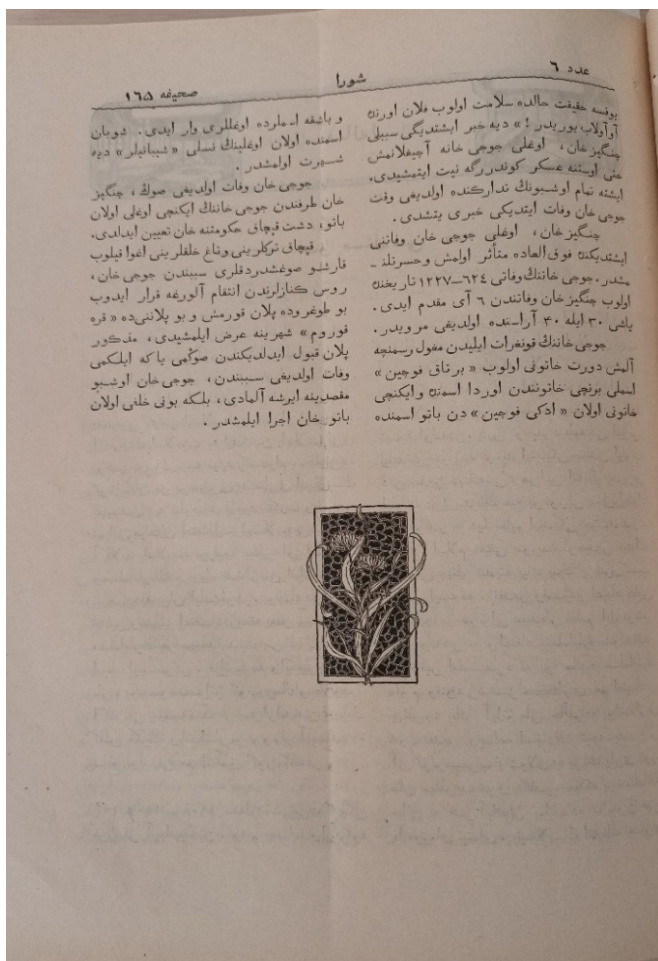 عدد ٦
شورا
صحیفه ١٦٥
یوقسه حقیقت حالده سلامت اولوب فلان اورنده
آوآولاب یوریدر!» دیه خبر ایشتدیگی سببلی
جنگیز خان، اوغلی جوجی خانه آچیغلانمش
حتی اوستنه عسکر کوندررگه نیت ایتمشیدی.
ایشته تمام اوشبونڭ تدارکنده اولدیغی وقت
جوجی خان وفات ایتدیکی خبری یتشدی.
جنگیز خان، اوغلی جوجی خان وفاتنی
ایشتدیکنده فوق العاده متأثر اولمش وحسرتلنـ
ـمشدر. جوجی خاننڭ وفاتی ٦٢٤–١٢٢٧ تاریخنده
اولوب جنگیز خان وفاتندن ٦ آی مقدم ایدی.
یاشی ٣٠ ایله ٤٠ آراسنده اولدیغی مرویدر.
جوجی خاننڭ قونغرات ایلیدن مغول رسمنچه
آلمش دورت خاتونی اولوب «برتاق فوچین»
اسملی برنچی خاتونندن اوردا اسمنده وایکنچی
خاتونی اولان «اوکی فوچین» دن باتو اسمنده
و باشقه اسملرده اوغللری وار ایدی. شوبان
اسمنده اولان اوغلینڭ نسلی «شیبانیلر» دیه
شهرت اولمشدر.
جوجی خان وفات اولدیغی صوڭ، جنگیز
خان طرفندن جوجی خاننڭ ایکنچی اوغلی اولان
باتو، دشت قپچاق حکومتنه خان تعیین ایدلدی.
قپچاق ترکلرینی وتاغ خلقلرینی اغوا قیلوب
قارشو صوغشدردقلری سببندن جوجی خان،
روس کنازلرندن انتقام آلورغه قرار ایدوب
بو طوغروده پلان قورمش و بو پلاننی ده «قره
قوروم» شهرینه عرض ایلمشیدی، مذکور
پلان قبول ایدلدیکندن صوڭمی یاکه ایلکمی
وفات اولدیغی سببندن، جوجی خان اوشبو
مقصدینه ایرشه آلمادی، بلکه بونی خلفی اولان
باتو خان اجرا ایلمشدر.